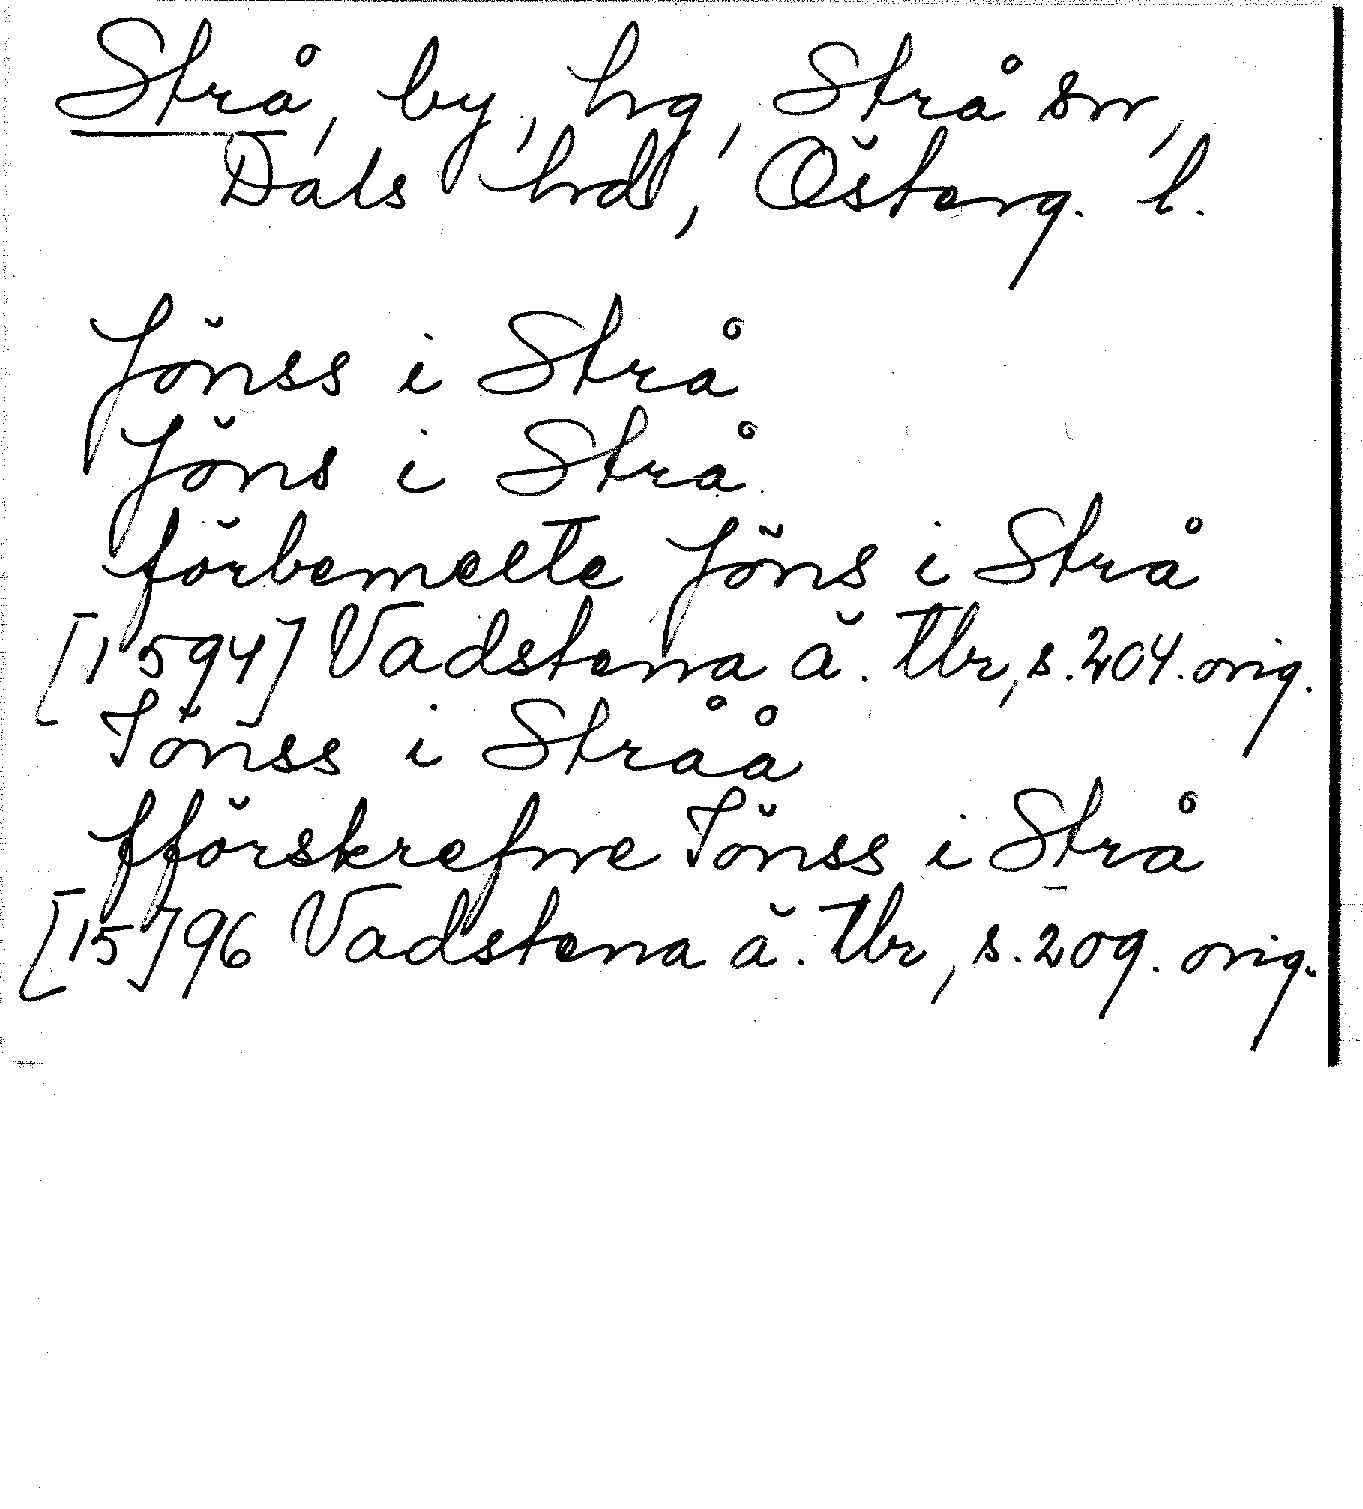 Strå, by, hg, Strå sn,
Dals hd, Österg. l.
Jönss i Strå
Jöns i Strå
förbemelte Jöns i Strå
[1594] Vadstena ä. tbr, s. 204. orig.
Jönss i Stråå
fförskrefne Jönss i Strå
[15]96 Vadstena ä. tbr, s. 209. orig.